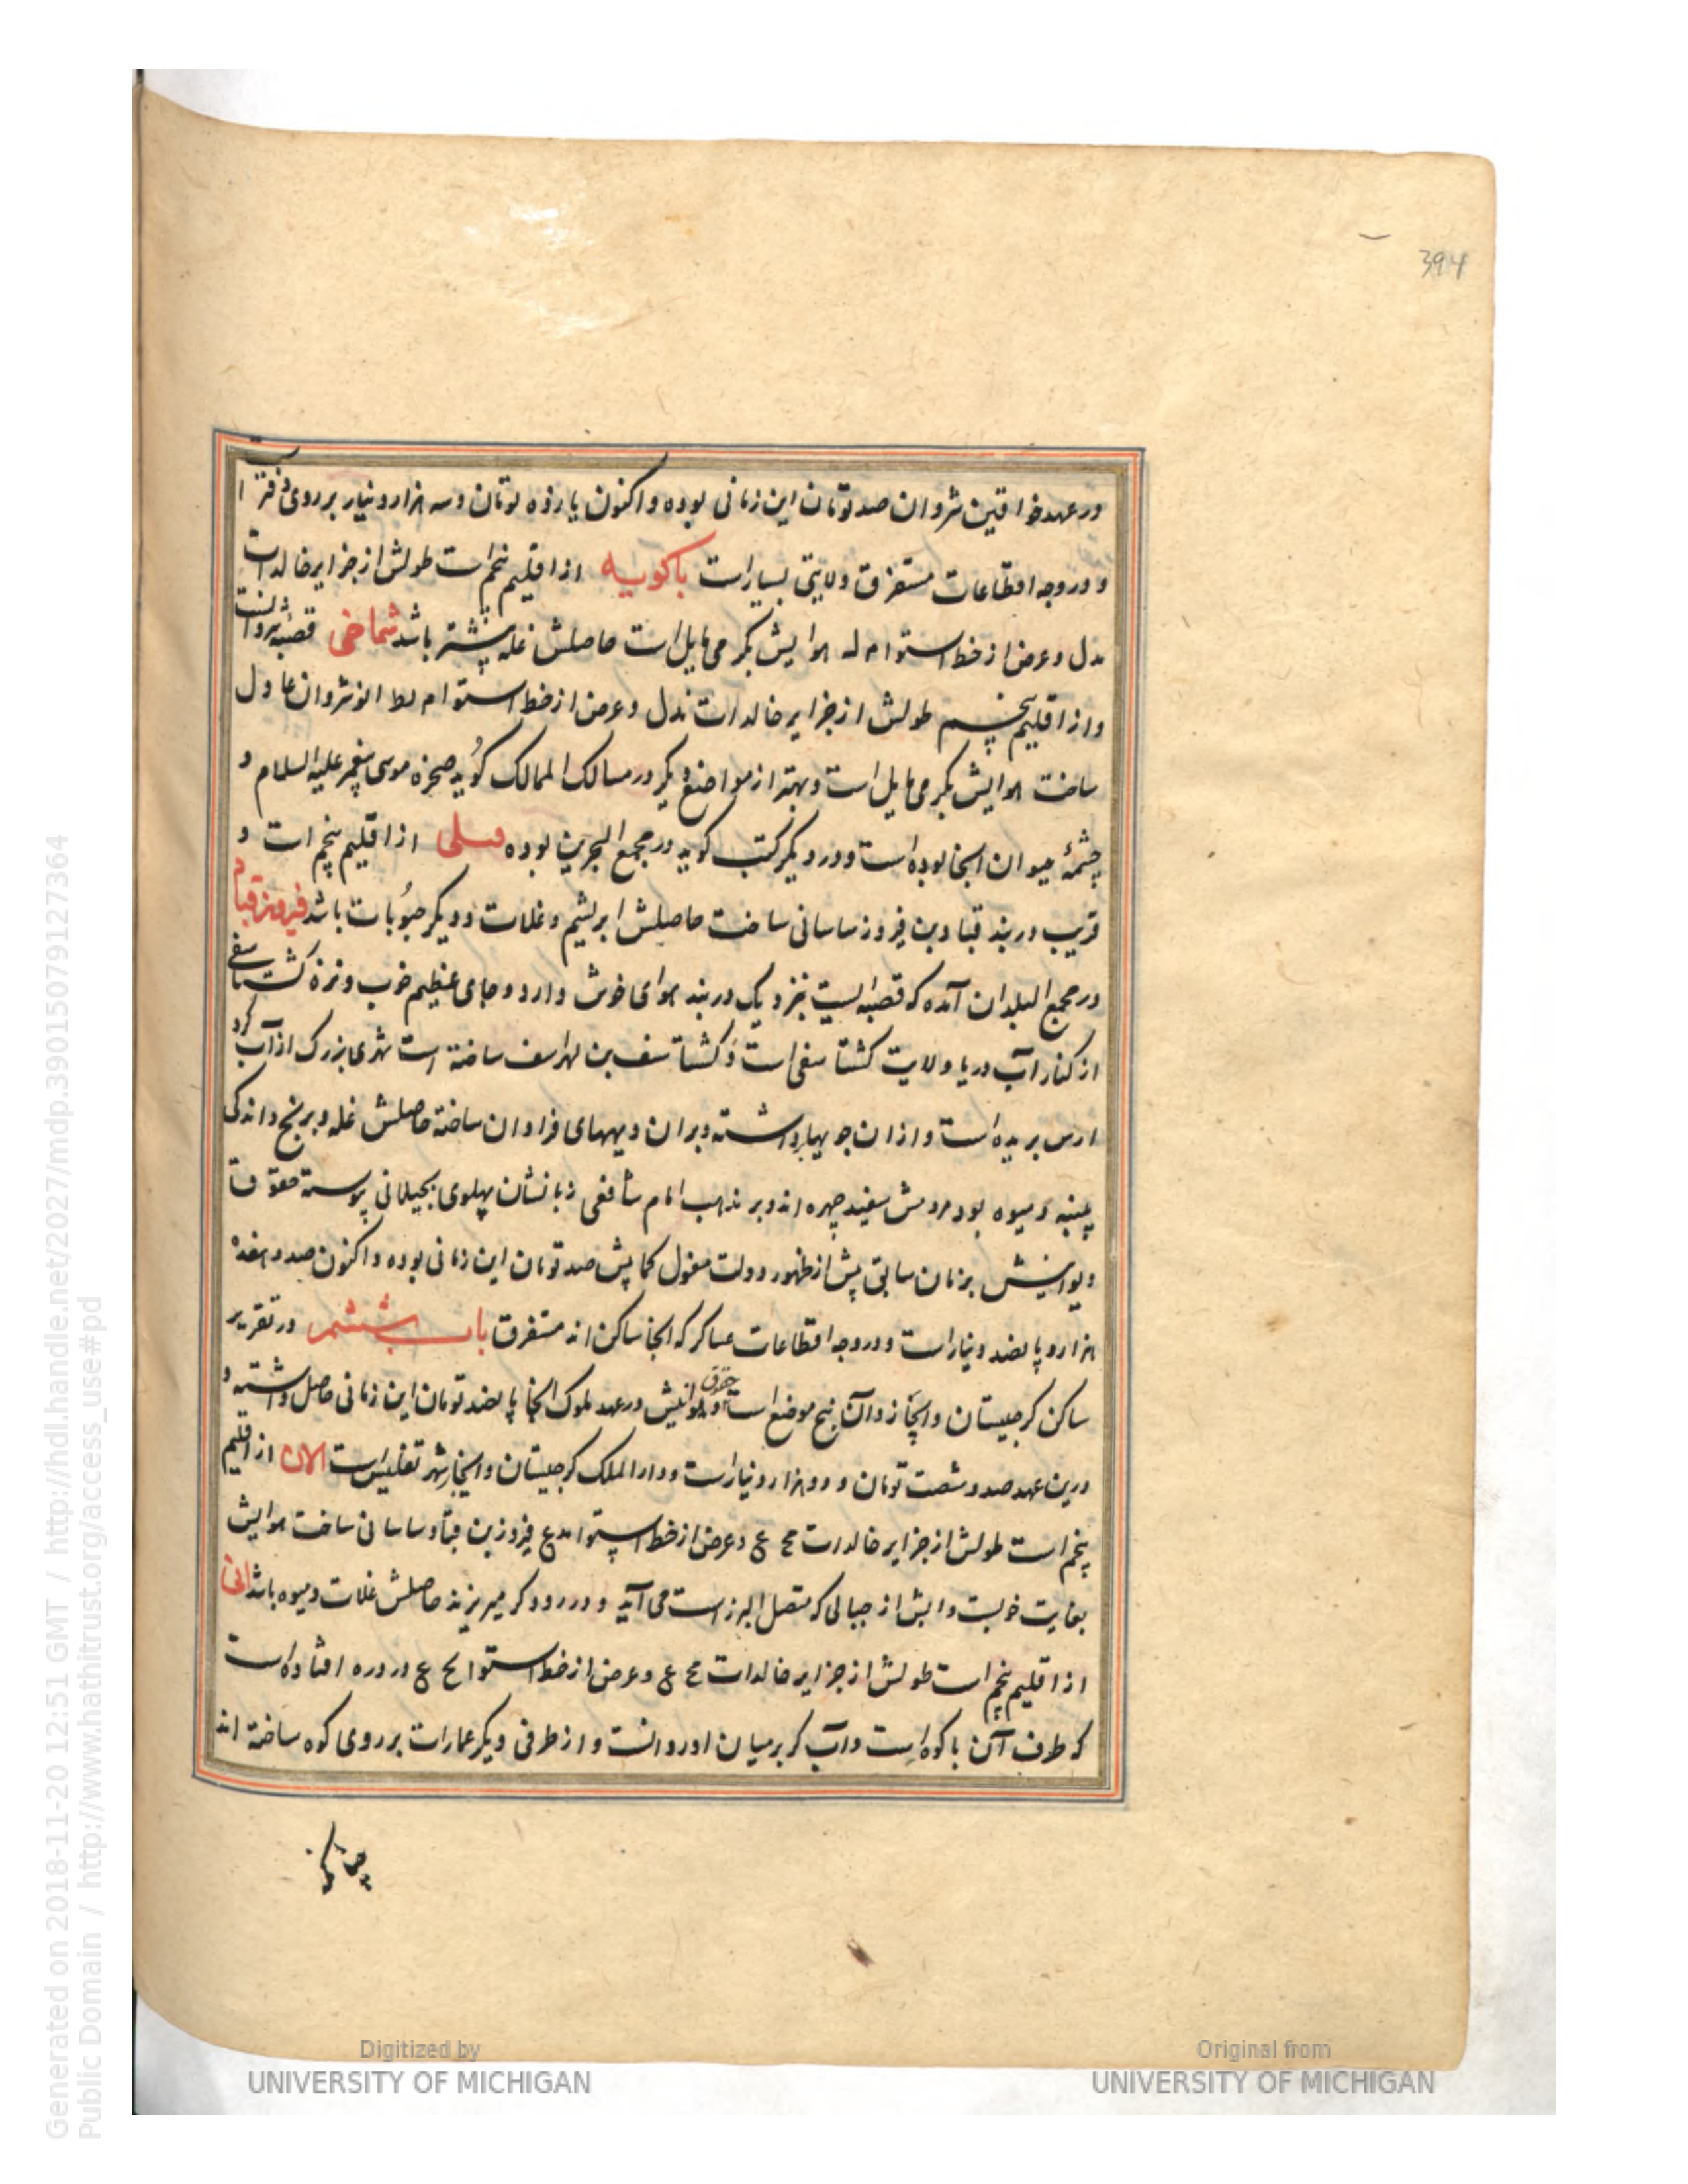 394
در عهد خواقین شروان صد تومان این زمانی بوده و اکنون یازده تومان و سه هزار دینار بر روی دفتر است
و در وجه اقطاعات متفرق ولایتی بسیار است باکویه از اقلیم پنجم است طولش از جزایر خالدات
مدل و عرض از خط استوا م له هوایش بگرمی مایل است حاصلش غله بیشتر باشد شماخی قصبه شروانست
و از اقلیم پنجم طولش از جزایر خالدات مدل و عرض از خط استوا م لط انوشروان عادل
ساخت هوایش بگرمی مایل است و بهتر از مواضع دیگر در مسالک الممالک گوید صخره موسی پیغمبر علیه السلام و
چشمهٔ حیوان انجا بوده است و در دیگر کتب گوید در مجمع البحرین بوده از اقلیم پنجم است و
قریب دربند قباد بن فیروز ساسانی ساخت حاصلش ابریشم و غلات و دیگر حبوبات باشد فیروزقباد
در معجم البلدان آمده که قصبه ایست بنزدیک دربند هوای خوش دارد و جای عظیم خوب و نزه کشتاسفی
از کنار آب دریا ولایت کشتاسفی است و کشتاسف بن لهراسف ساخته است نهری بزرگ از آب کر و
ارس بریده است و از ان جویها برداشته و بران دیههای فراوان ساخته حاصلش غله و برنج و اندکی
پنبه و میوه بود مردمش سفید چهره اند و بر مذهب امام شافعی زبانشان پهلوی بجیلانی پیوسته حقوق
دیوانیش بزمان سابق پیش از ظهور دولت مغول کمابیش صد تومان این زمانی بوده و اکنون صد و هفده
هزار و پانصد دینار است و در وجه اقطاعات عساکر که انجا ساکن اند متفرق باب ششم در تقریر
ساکن کرجیستان و ابخاز و آن پنج موضع است و حقوق دیوانیش در عهد ملوک انجا پانصد تومان این زمانی حاصل داشته و
درین عهد صد و شصت تومان و دو هزار دینار است و دار الملک کرجیستان و ابخاز شهر تفلیس است الان از اقلیم
پنجم است طولش از جزایر خالدات مح ع و عرض از خط استوا مد ع فیروز بن قباد ساسانی ساخت هوایش
بغایت خوبست و ابش از جبالی که متصل البرز است می آید و در رود کر میریزند حاصلش غلات و میوه باشد انی
از اقلیم پنجم است طولش از جزایر خالدات مح ع و عرض از خط استوا لح ع در دره افتاده است
که طرف آن با کوه است و آب کر بر میان او روانست و از طرفی دیگر عمارات بر روی کوه ساخته اند
چنانکه
Generated on 2018-11-20 12:51 GMT / http://hdl.handle.net/2027/mdp.39015079127364
Public Domain / http://www.hathitrust.org/access_use#pd
Digitized by
UNIVERSITY OF MICHIGAN
Original from
UNIVERSITY OF MICHIGAN